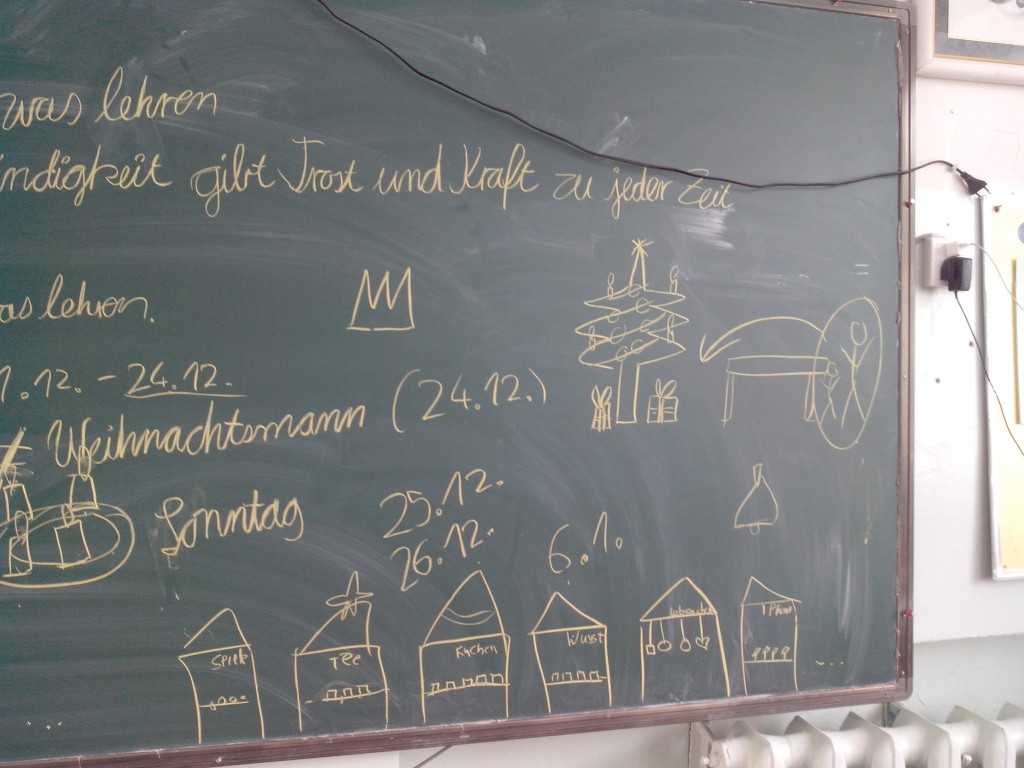 was lehren
ndigkeit gibt Trost und Kraft zu jeder Zeit
as lehren.
1.12. - 24.12.
Weihnachtsmann (24.12.)
Sonntag
25.12.
26.12.
6.1.
Spiele
Tee
Kuchen
Wurst
....
...